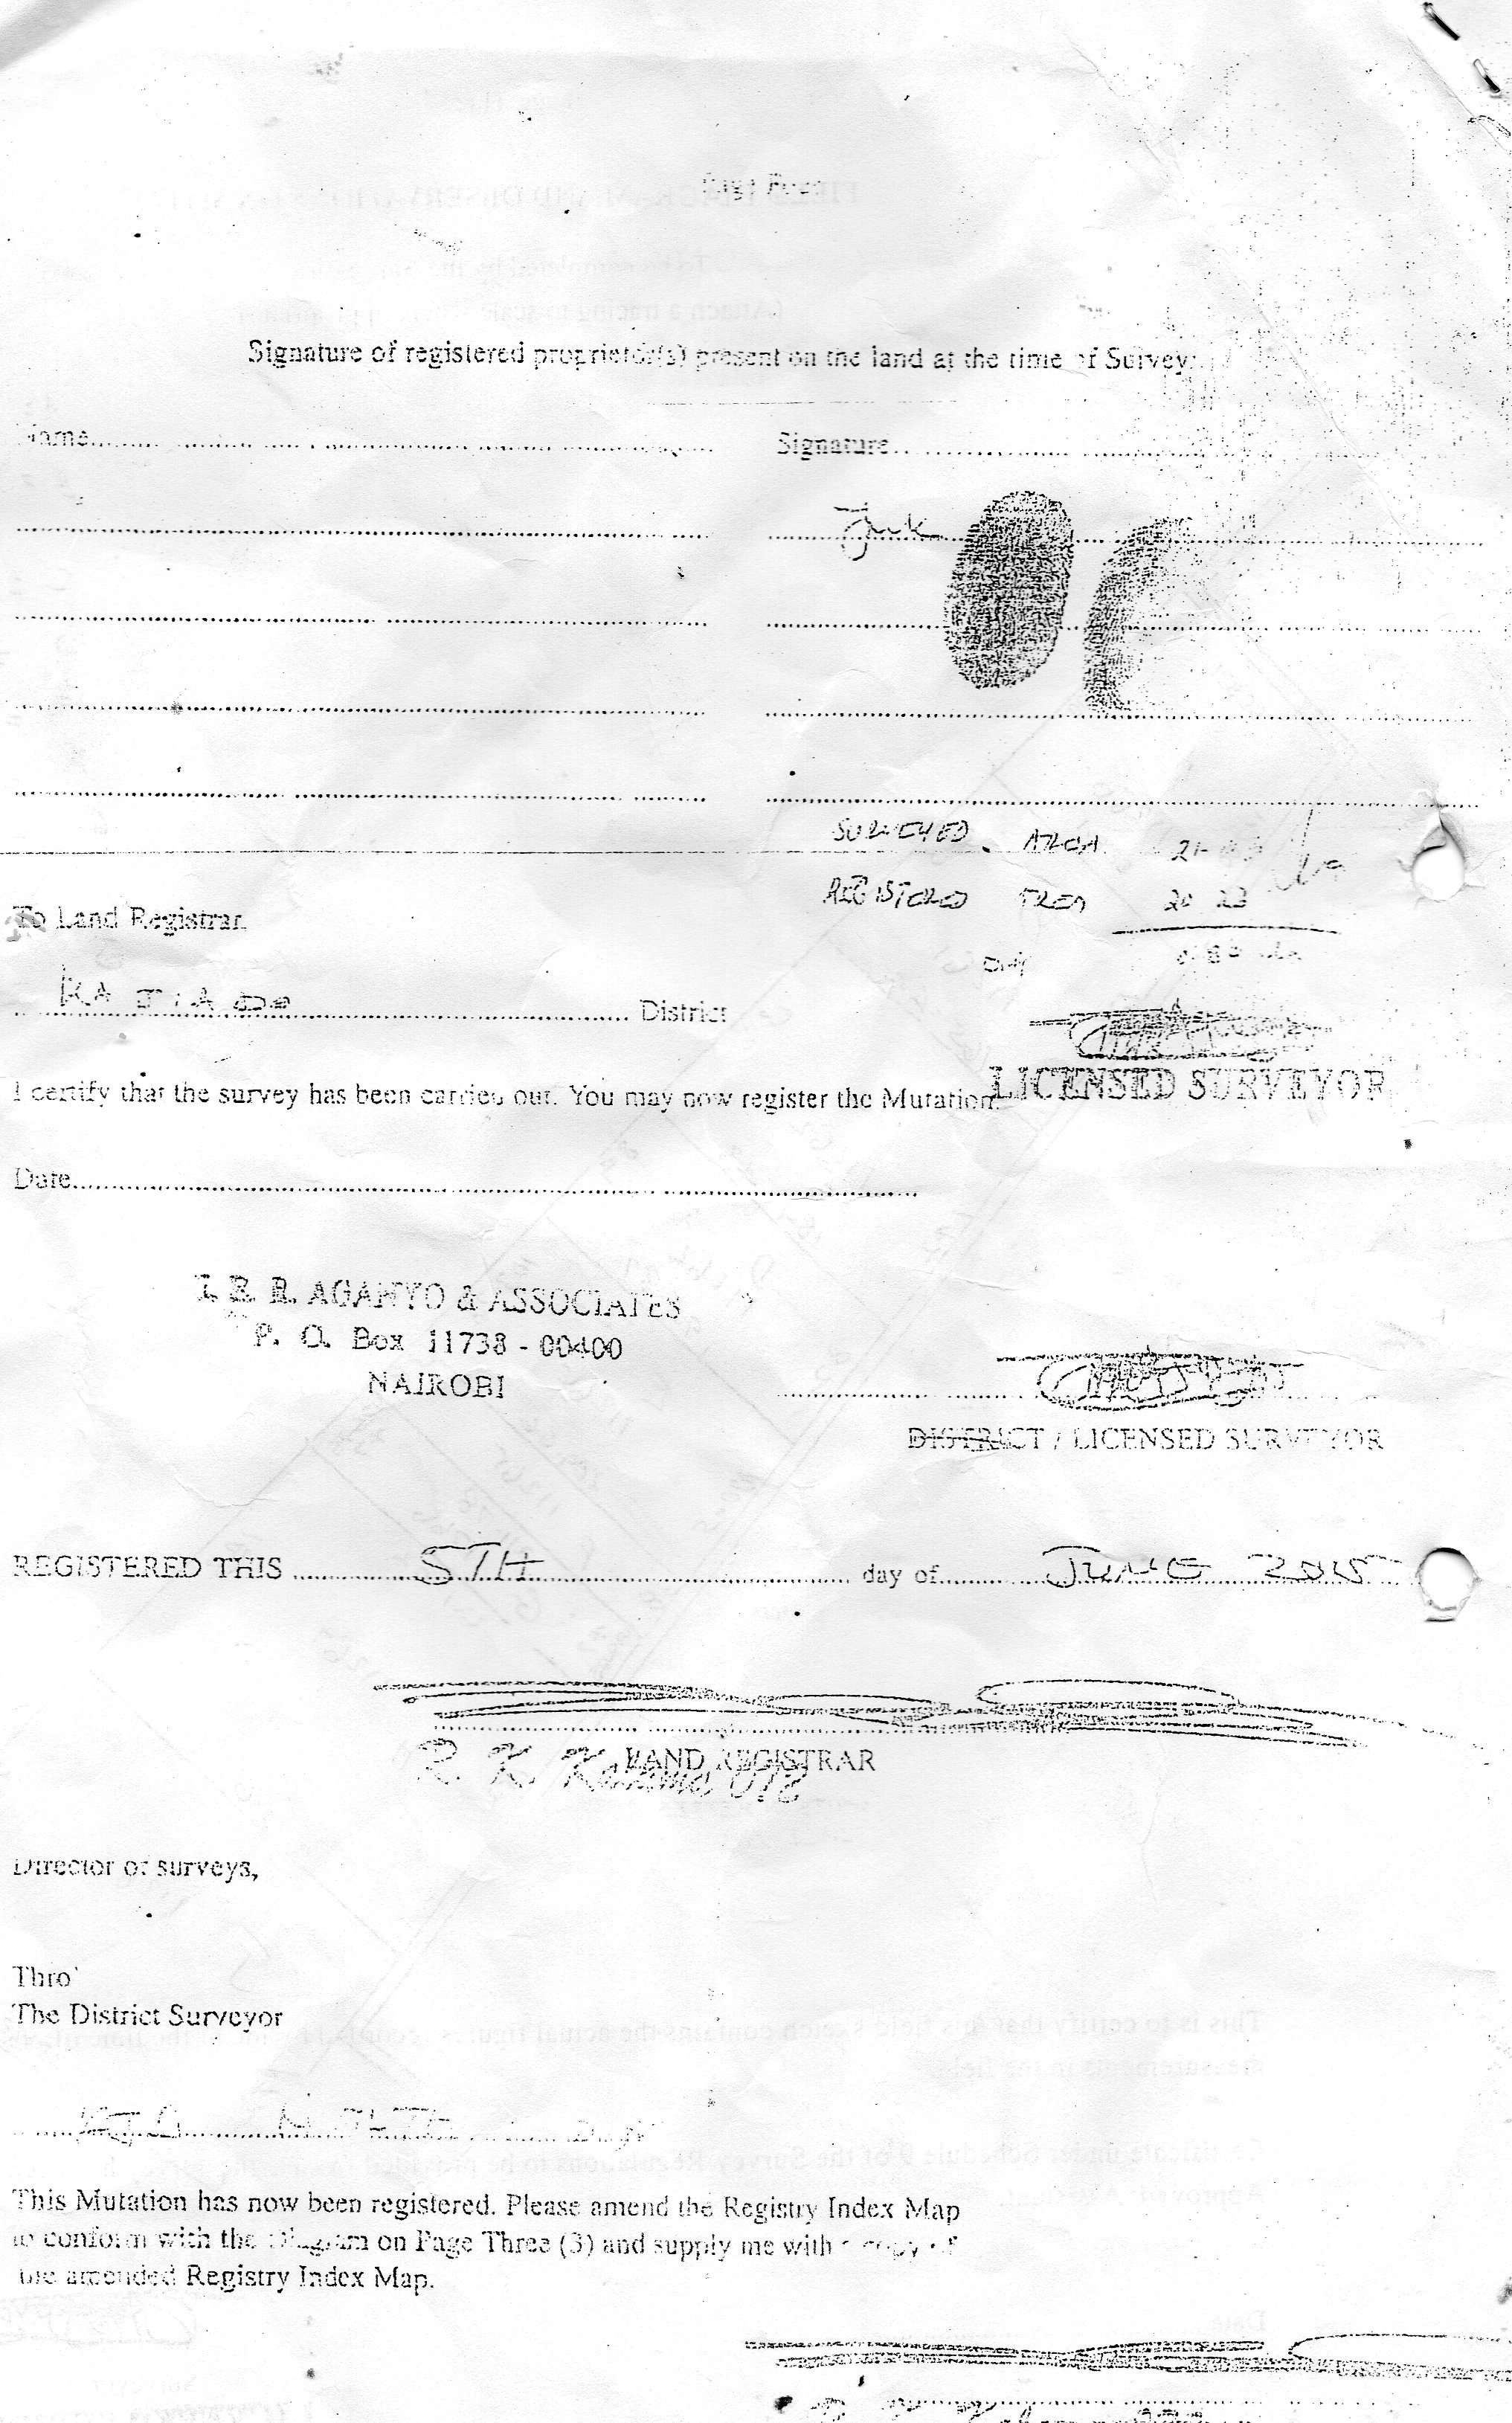 Signature of registered proprietor(s) present on the land at the time of Survey.
Name
Signature
SURVEYED. AREA 21
REGISTERED AREA 20
To Land Registrar
KAJIADO District
I certify that the survey has been carried out. You may now register the Mutation.
LICENSED SURVEYOR
Date
AGANYO & ASSOCIATES
P. O. Box 11738 - 00400
NAIROBI
DISTRICT / LICENSED SURVEYOR
REGISTERED THIS 5TH day of JUNE 2015
LAND REGISTRAR
R. K.
Director of surveys,
Thro'
The District Surveyor
This Mutation has now been registered. Please amend the Registry Index Map
to conform with the diagram on Page Three (3) and supply me with a copy of
the amended Registry Index Map.